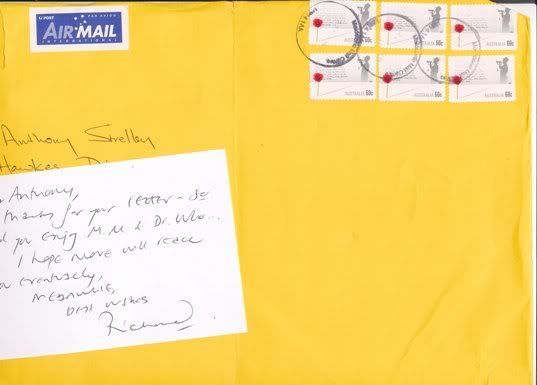 POST PAR AVION
AIR MAIL
INTERNATIONAL
AUSTRALIA 60c
AUSTRALIA 60c
AUSTRALIA 60c
AUSTRALIA 60c
AUSTRALIA 60c
AUSTRALIA 60c
Anthony Strelley
Anthony,
thanks for your letter - so
you enjoy M.M & Dr. Who...
I hope more will reach
eventually,
Meanwhile,
Best wishes
Richard